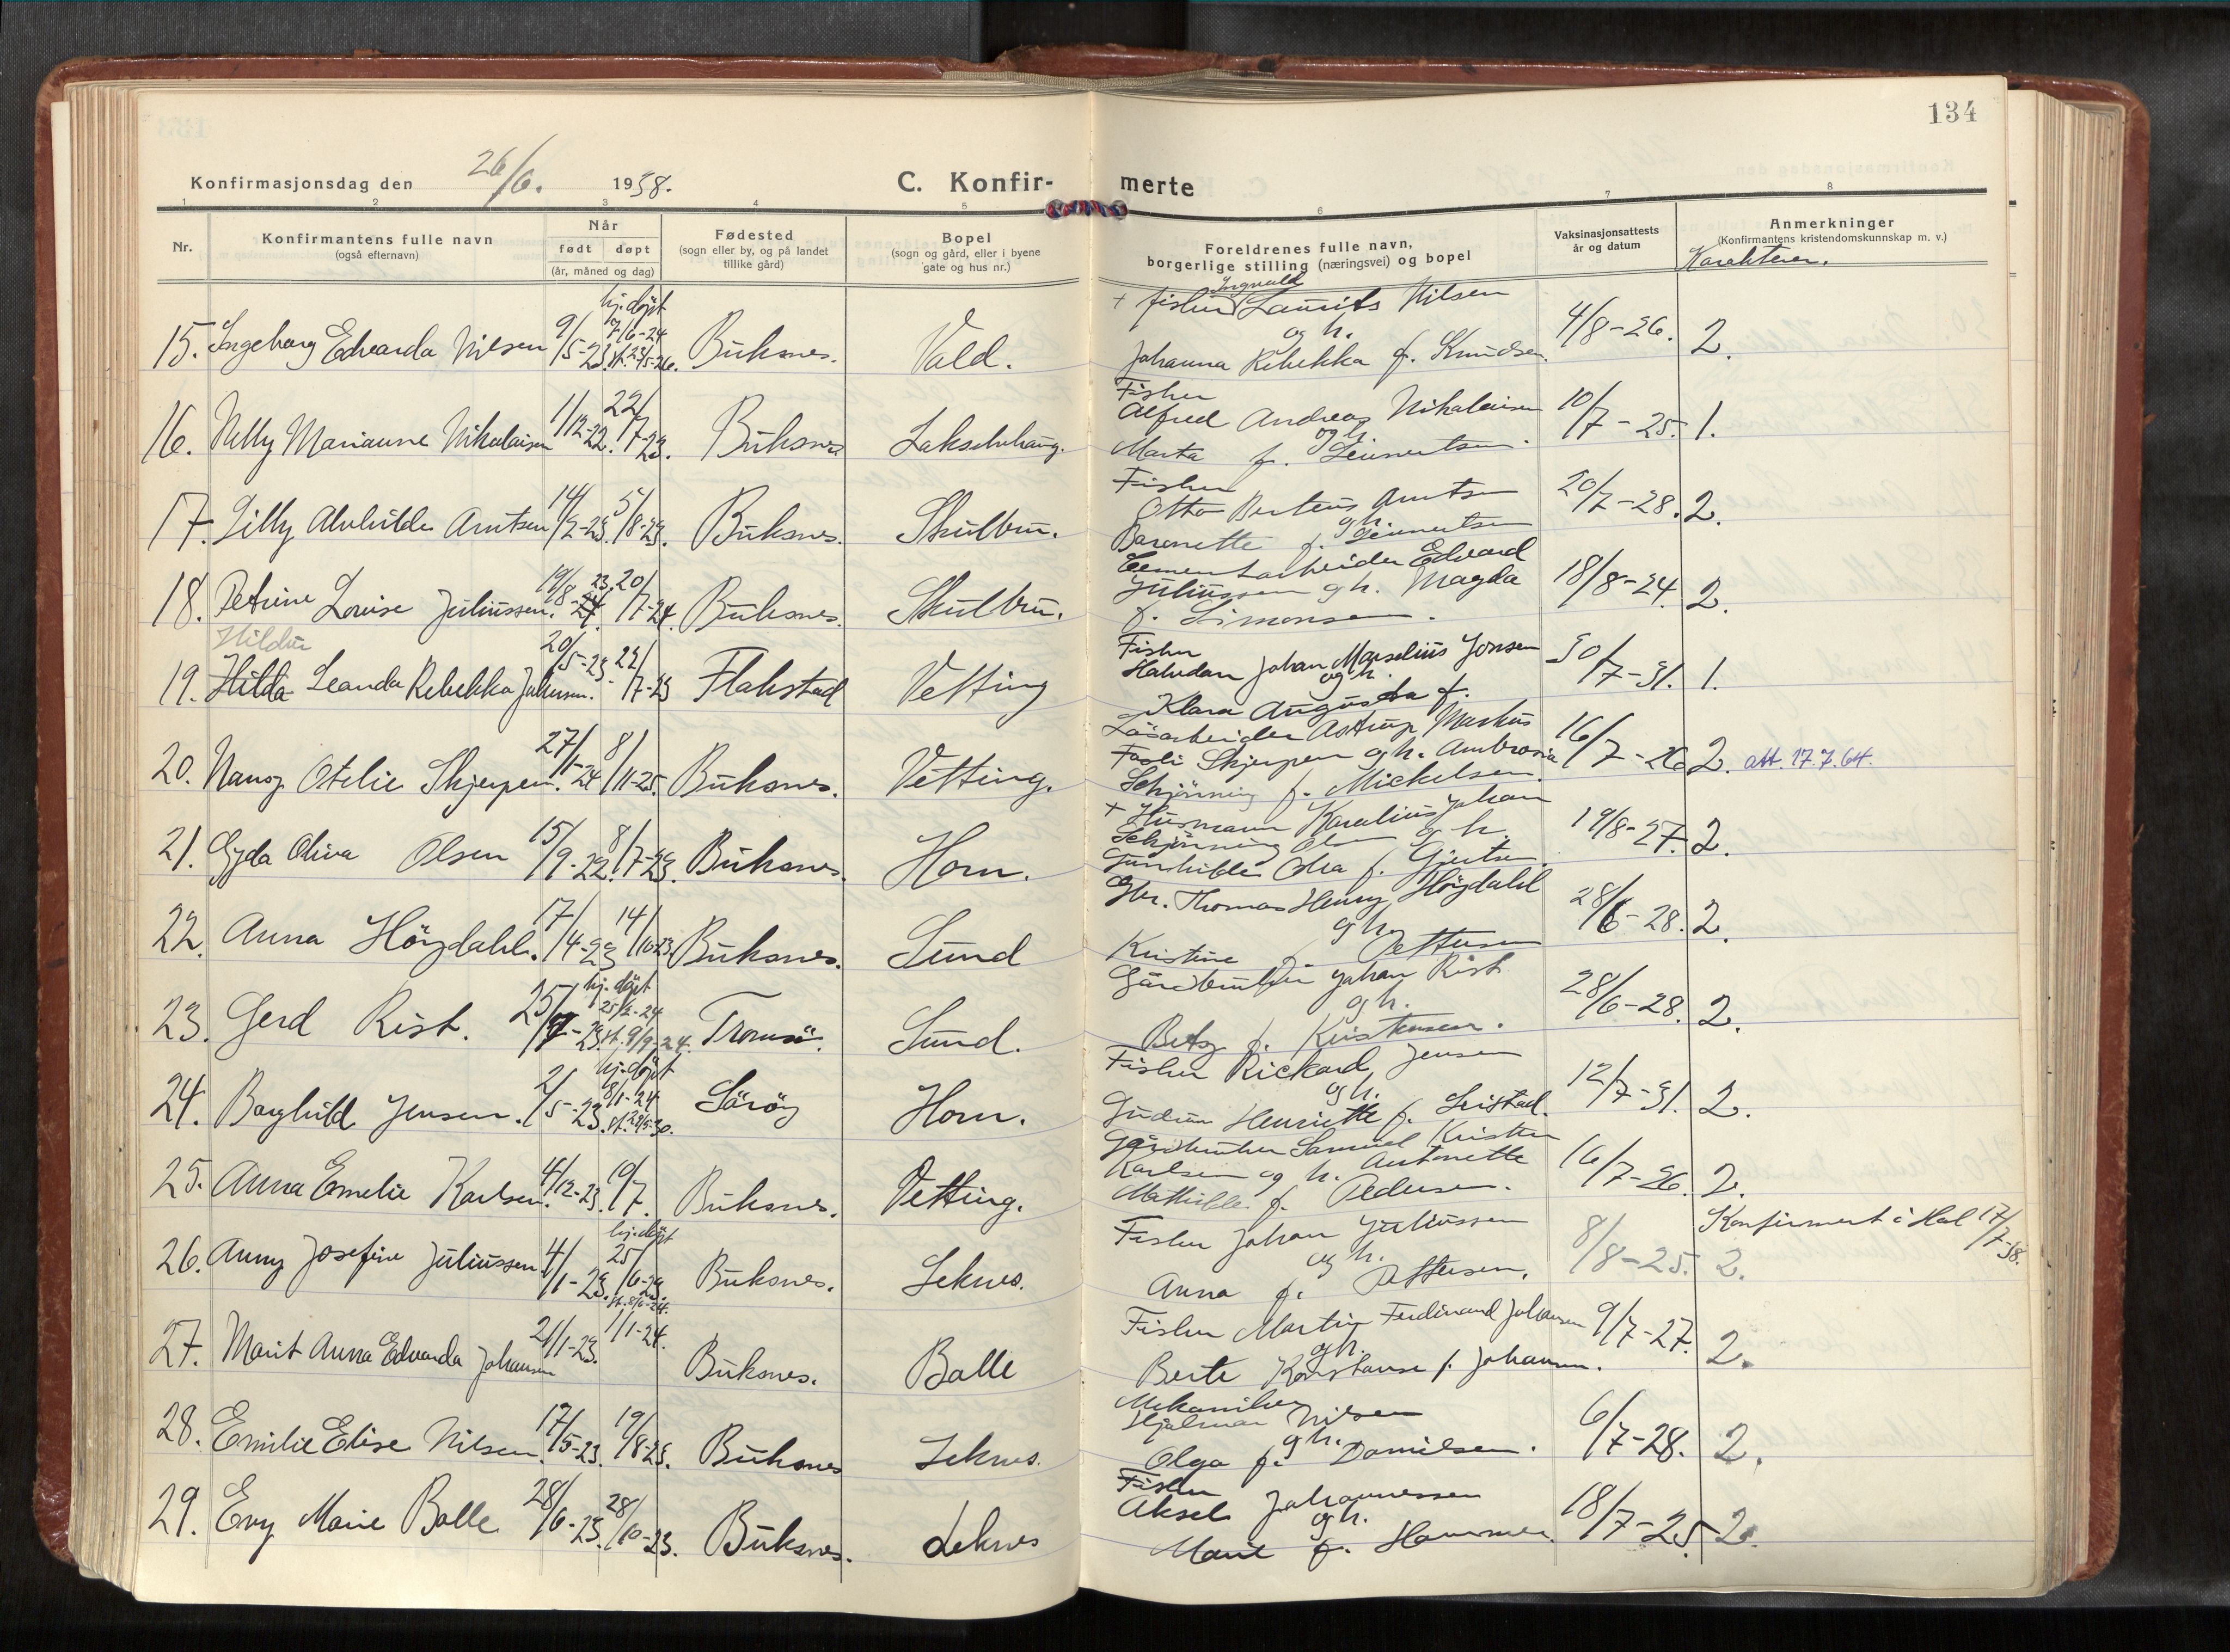 134
Konfirmasjonsdag den 26/6. 1938.
C. Konfir-merte
1 2 3 4 5 6 7 8
Nr.
Konfirmantens fulle navn
(også efternavn)
Når
født døpt
(år, måned og dag)
Fødested
(sogn eller by, og på landet
tillike gård)
Bopel
(sogn og gård, eller i byene
gate og hus nr.)
Foreldrenes fulle navn,
borgerlige stilling (næringsvei) og bopel
Vaksinasjonsattests
år og datum
Anmerkninger
(Konfirmantens kristendomskunnskap m. v.)
Karakterer.
hj. døpt
15. Ingeborg Edvarda Nilsen 9/5-23. 7/6-24 st. 23/5-26. Buksnes. Vold.
+ fisker Ingvald Laurits Nilsen
og h.
Johanna Rebekka f. Knudsen. 4/8-26. 2.
16. Nelly Marianne Nikolaisen 1/12-22. 22/7-23. Buksnes
Fisker
Alfred Andreas Nikolaisen
og h.
Marta f. Leinertsen. 10/7-25. 1.
17. Lilly Alvhilde Arntsen 14/2-23. 5/8-23. Buksnes. Skulbru.
Fisker
Otto Berteus Arntsen
og h.
Baronette f. Leinertsen 20/7-28. 2.
18. Petrine Louise Juliussen. 19/8-24. 23. 20/7-24. Buksnes. Skulbru.
Cementarbeider Edvard
Juliussen og h. Magda
f. Simonsen. 18/8-24. 2.
Hildur
19. Hilda Leanda Rebekka Johansen. 20/5-23. 22/7-23 Flakstad Vetting
Fisker
Halvdan Johan Marselius Jonsen
og h.
Klara Augusta f. 30/7-31. 1.
20. Nancy Otelie Skjerpen. 27/1-24 8/11-25. Buksnes. Vetting.
Løsarbeider Astrup Markus
Skjerpen og h. Ambrosia
Schjønning f. Mickelsen. 16/7-26 2. att. 17.7.64.
21. Gyda Oliva Olsen 15/9-22. 8/7-23. Buksnes. Horn.
+ Husmann Karelius Johan
Schjønning Olsen og h.
Gunhilde f. Gjertsen. 19/8-27. 2.
22. Anna Höydahl. 17/4-23 14/10-23 Buksnes. Sund
Gbr. Thomas Henry Höydahl
og h.
Kristine f. Pettersen 28/6-28. 2.
hj. døpt
23. Gerd Rist. 25/7-23. 25/2-24 st. 9/9-24. Tromsö. Sund.
Gårdbruker Johan Rist
og h.
Betzy f. Kristensen. 28/6-28. 2.
hj. døpt
24. Borghild Jensen. 2/5-23. 8/1-24 st. 29/5-30. Sörøy Horn.
Fisker Rickard Jensen
og h.
Gudrun Henriette f. Leistad. 12/7-31. 2.
25. Anna Emelie Karlsen. 4/12-23. 19/7. Buksnes. Vetting.
Gårdbruker Samuel Kristen
Karlsen og h. Antonette
Mathilde f. Pedersen. 16/7-26. 2.
hj. døpt
26. Anny Josefine Juliussen 4/1-23. 25/6-23. st. 8/6-24. Buksnes. Leknes.
Fisker Johan Juliussen
og h.
Anna f. Pettersen. 8/8-25. 2. Konfirmert i Hol 17/7-38.
27. Marit Anna Edvarda Johansen 21/1-23. 1/1-24. Buksnes. Balle
Fisker Martin Ferdinand Johansen
og h.
Berte Konstanse f. Johansen. 9/7-27. 2.
28. Emilie Elise Nilsen. 17/5-23. 19/8-23. Buksnes Leknes.
Mekaniker
Hjalmar Nilsen
og h.
Olga f. Danielsen. 6/7-28. 2.
29. Evy Marie Balle 28/6-23. 28/10-23. Buksnes. Leknes
Fisker
Aksel Johannessen
og h.
Marie f. Hammer. 18/7-25. 2.